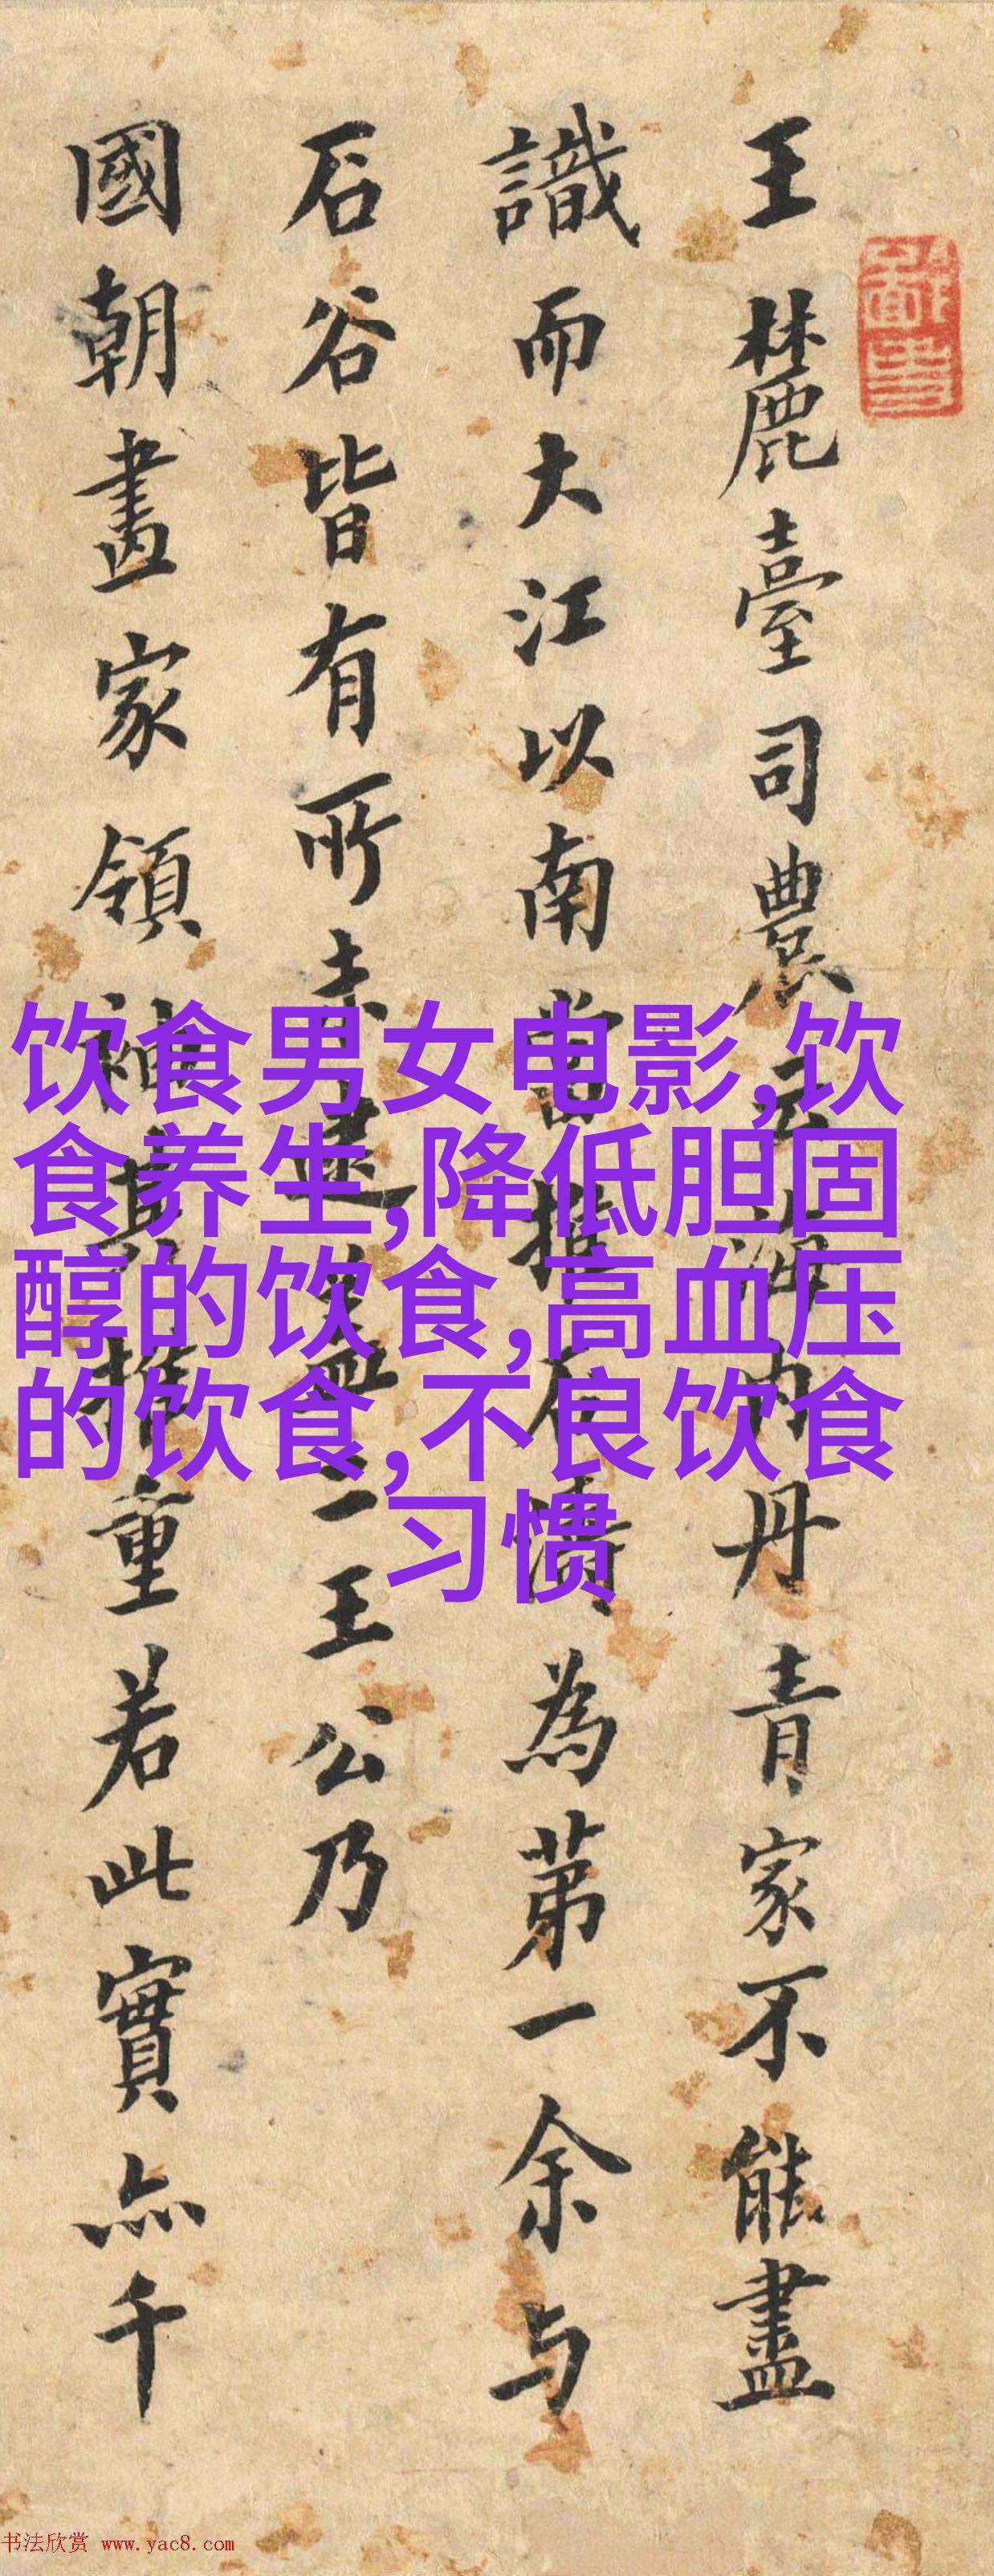 王麓臺司農云海内丹青家不能盡
識而大江以南當推石濤為苐一余与
石谷皆有所未逮盖二王公乃
國朝畫家領袖其推重若此實亦千
饮食男女电影,饮
食养生,降低胆固
醇的饮食,高血压
的饮食,不良饮食
习惯
书法欣赏 www.yac8.com